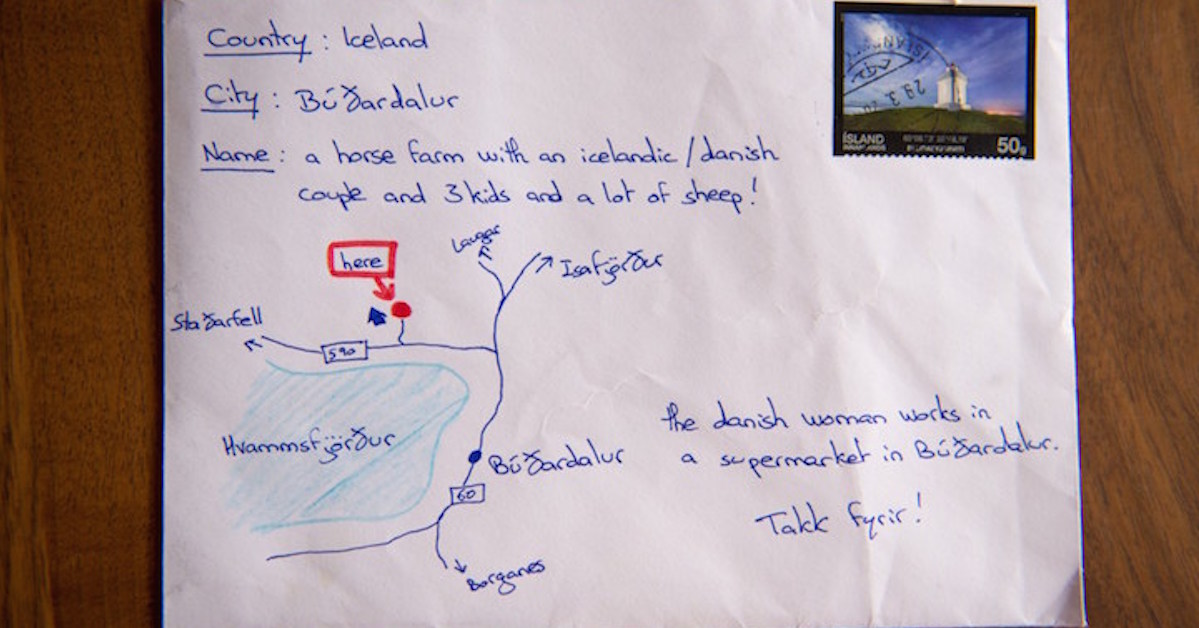 Country : Iceland
City : Búðardalur
Name : a horse farm with an icelandic / danish
couple and 3 kids and a lot of sheep!
ÍSLAND
29.3.
ÍSLAND
50g
here
Laugar
Isafjörður
Staðarfell
590
Hvammsfjörður
Búðardalur
60
Borganes
the danish woman works in
a supermarket in Búðardalur.
Takk fyrir!